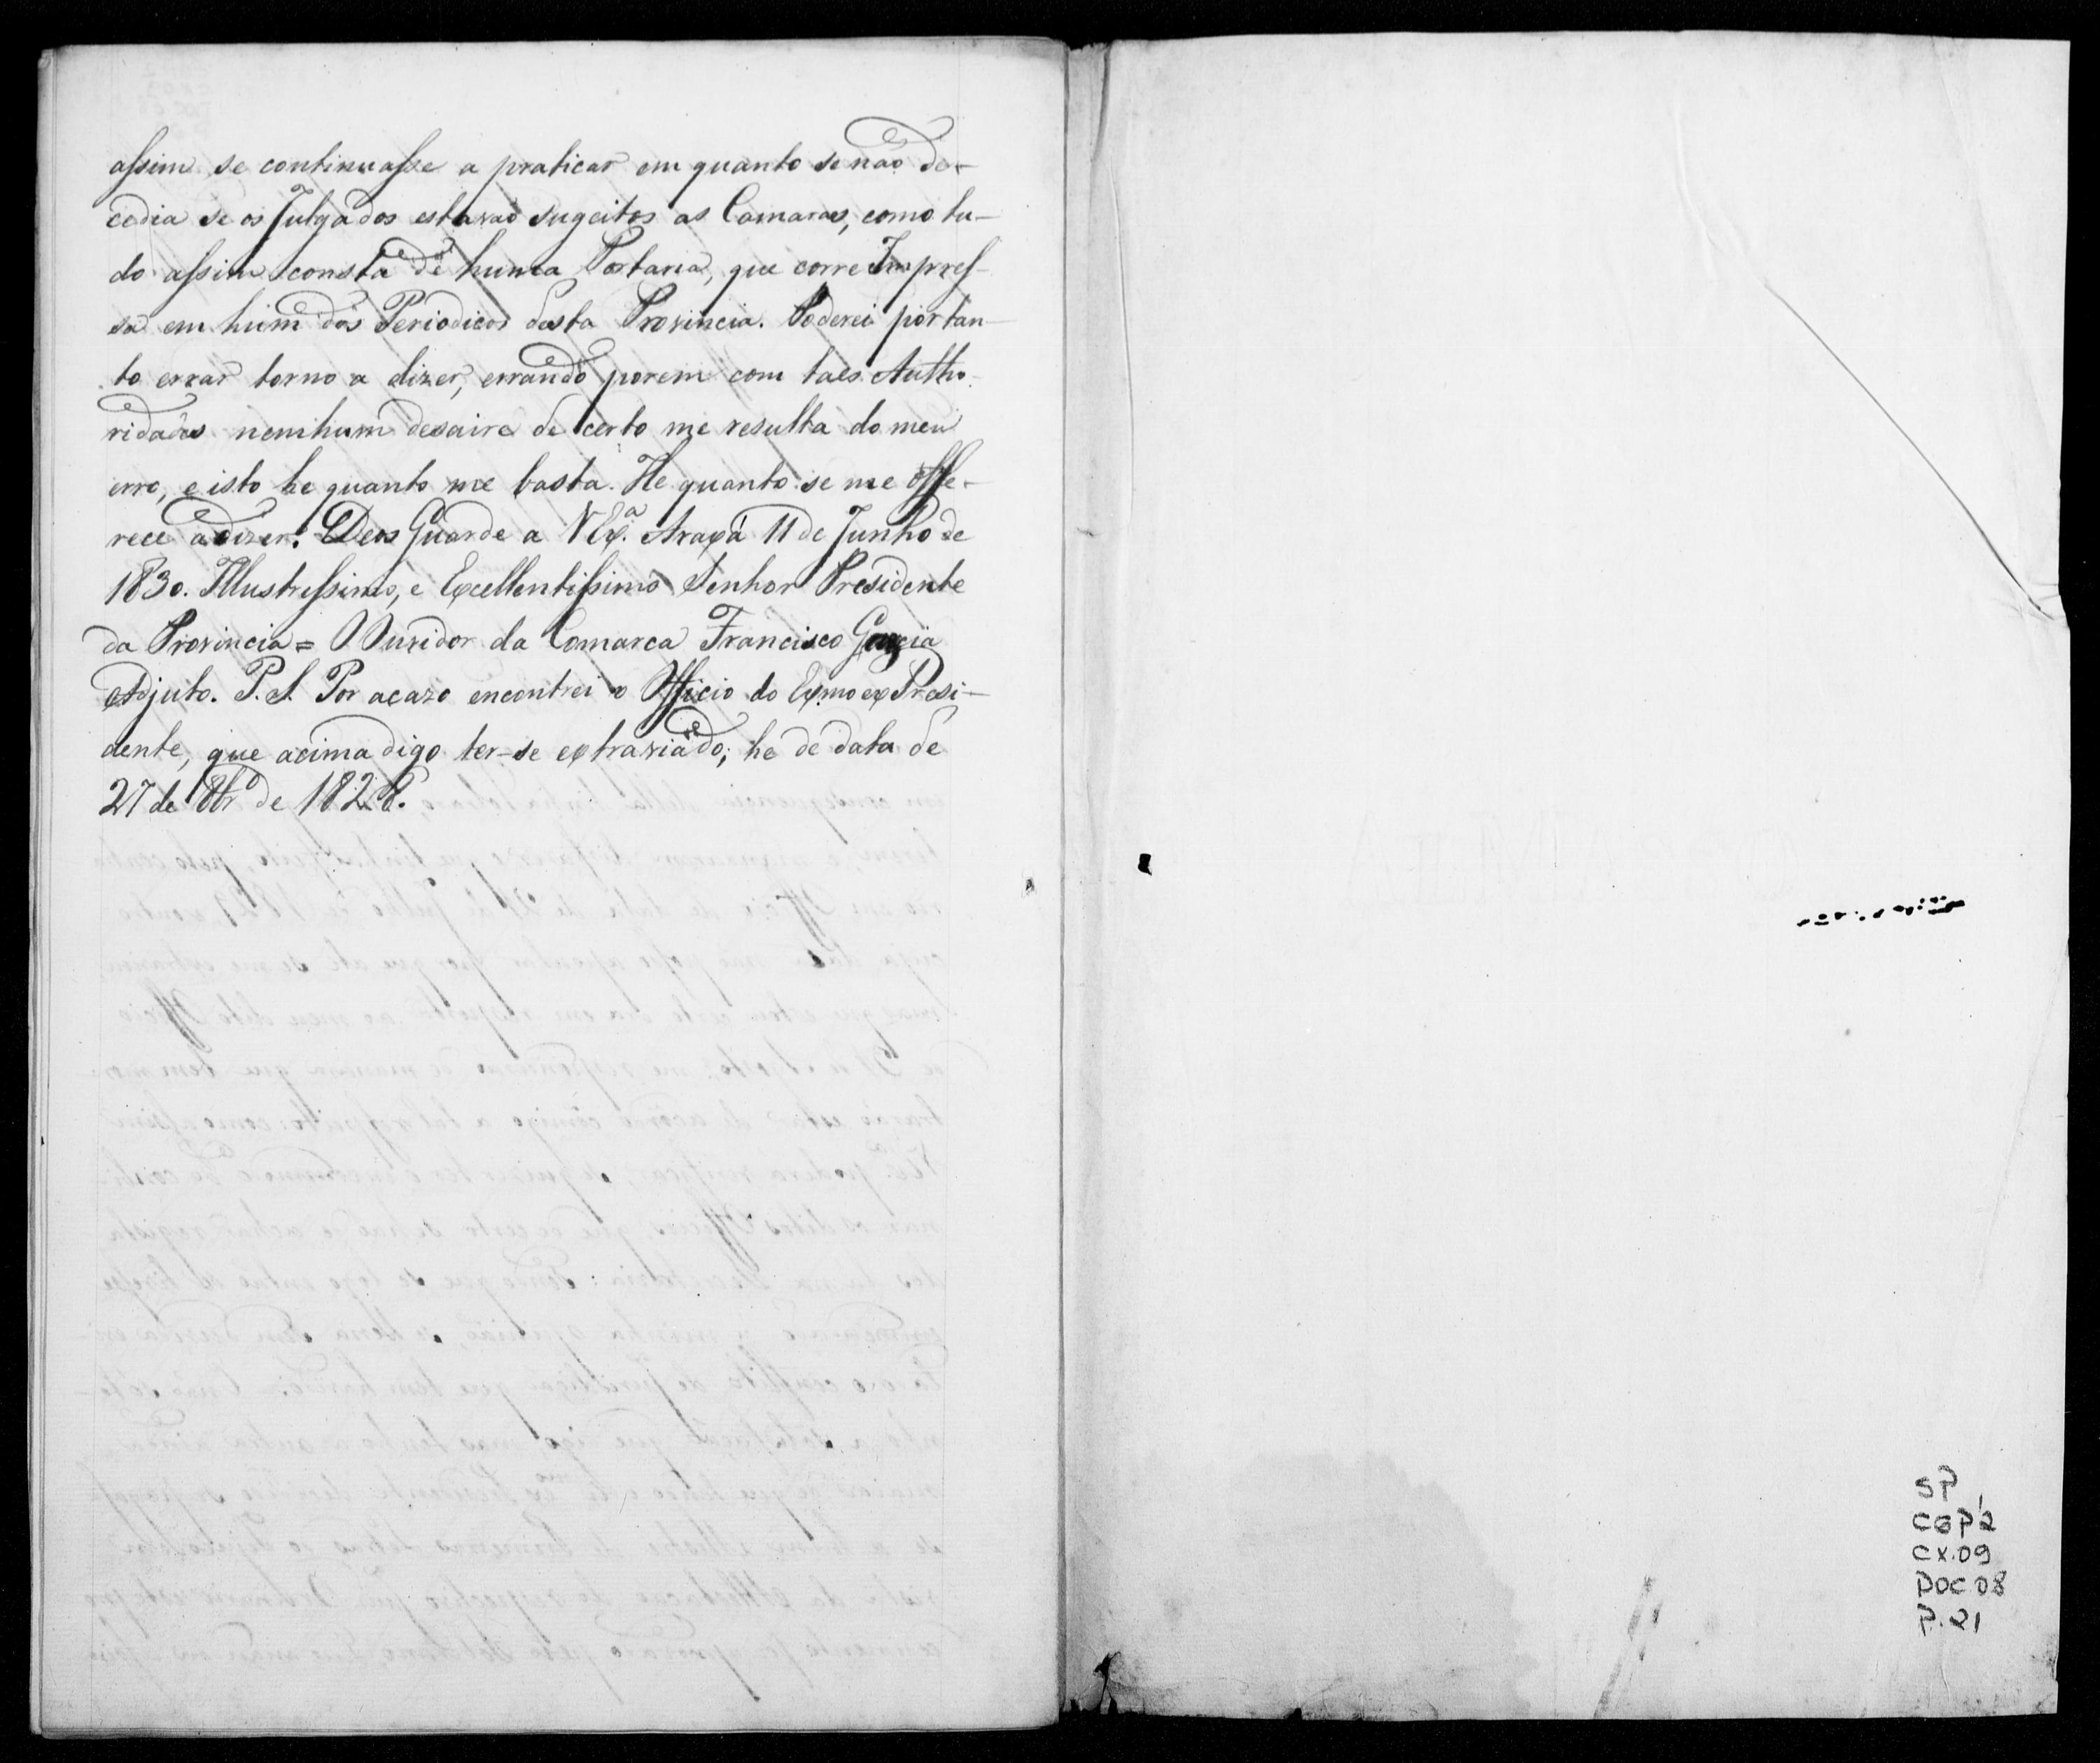 assim se continuasse a praticar em quanto se não de-
cedia se os Julgados estavaõ sugeitos as Camaras, como tu-
do assim consta de huma Portaria, que corre Impres-
sa em hum dos Periodicos desta Provincia. Poderei portan-
to errar torno a dizer, errando porem com taes Autho-
ridades nemhum desaire de certo me resulta do meu
erro, e isto he quanto me basta. He quanto se me offe-
rece a dizer. Deos Guarde a V Exª. Araxá 11 de Junho de
1830. Illustressimo, e Excellentissimo Senhor Presidente
da Provincia = Ouvidor da Comarca Francisco Garcia
Adjuto. P. S. Por acazo encontrei o Officio do Exmo ex Presi-
dente, que acima digo ter-se extraviado; he de data de
27 de 8brº de 1828.
SP
CGP2
CX.09
DOC 08
P.21